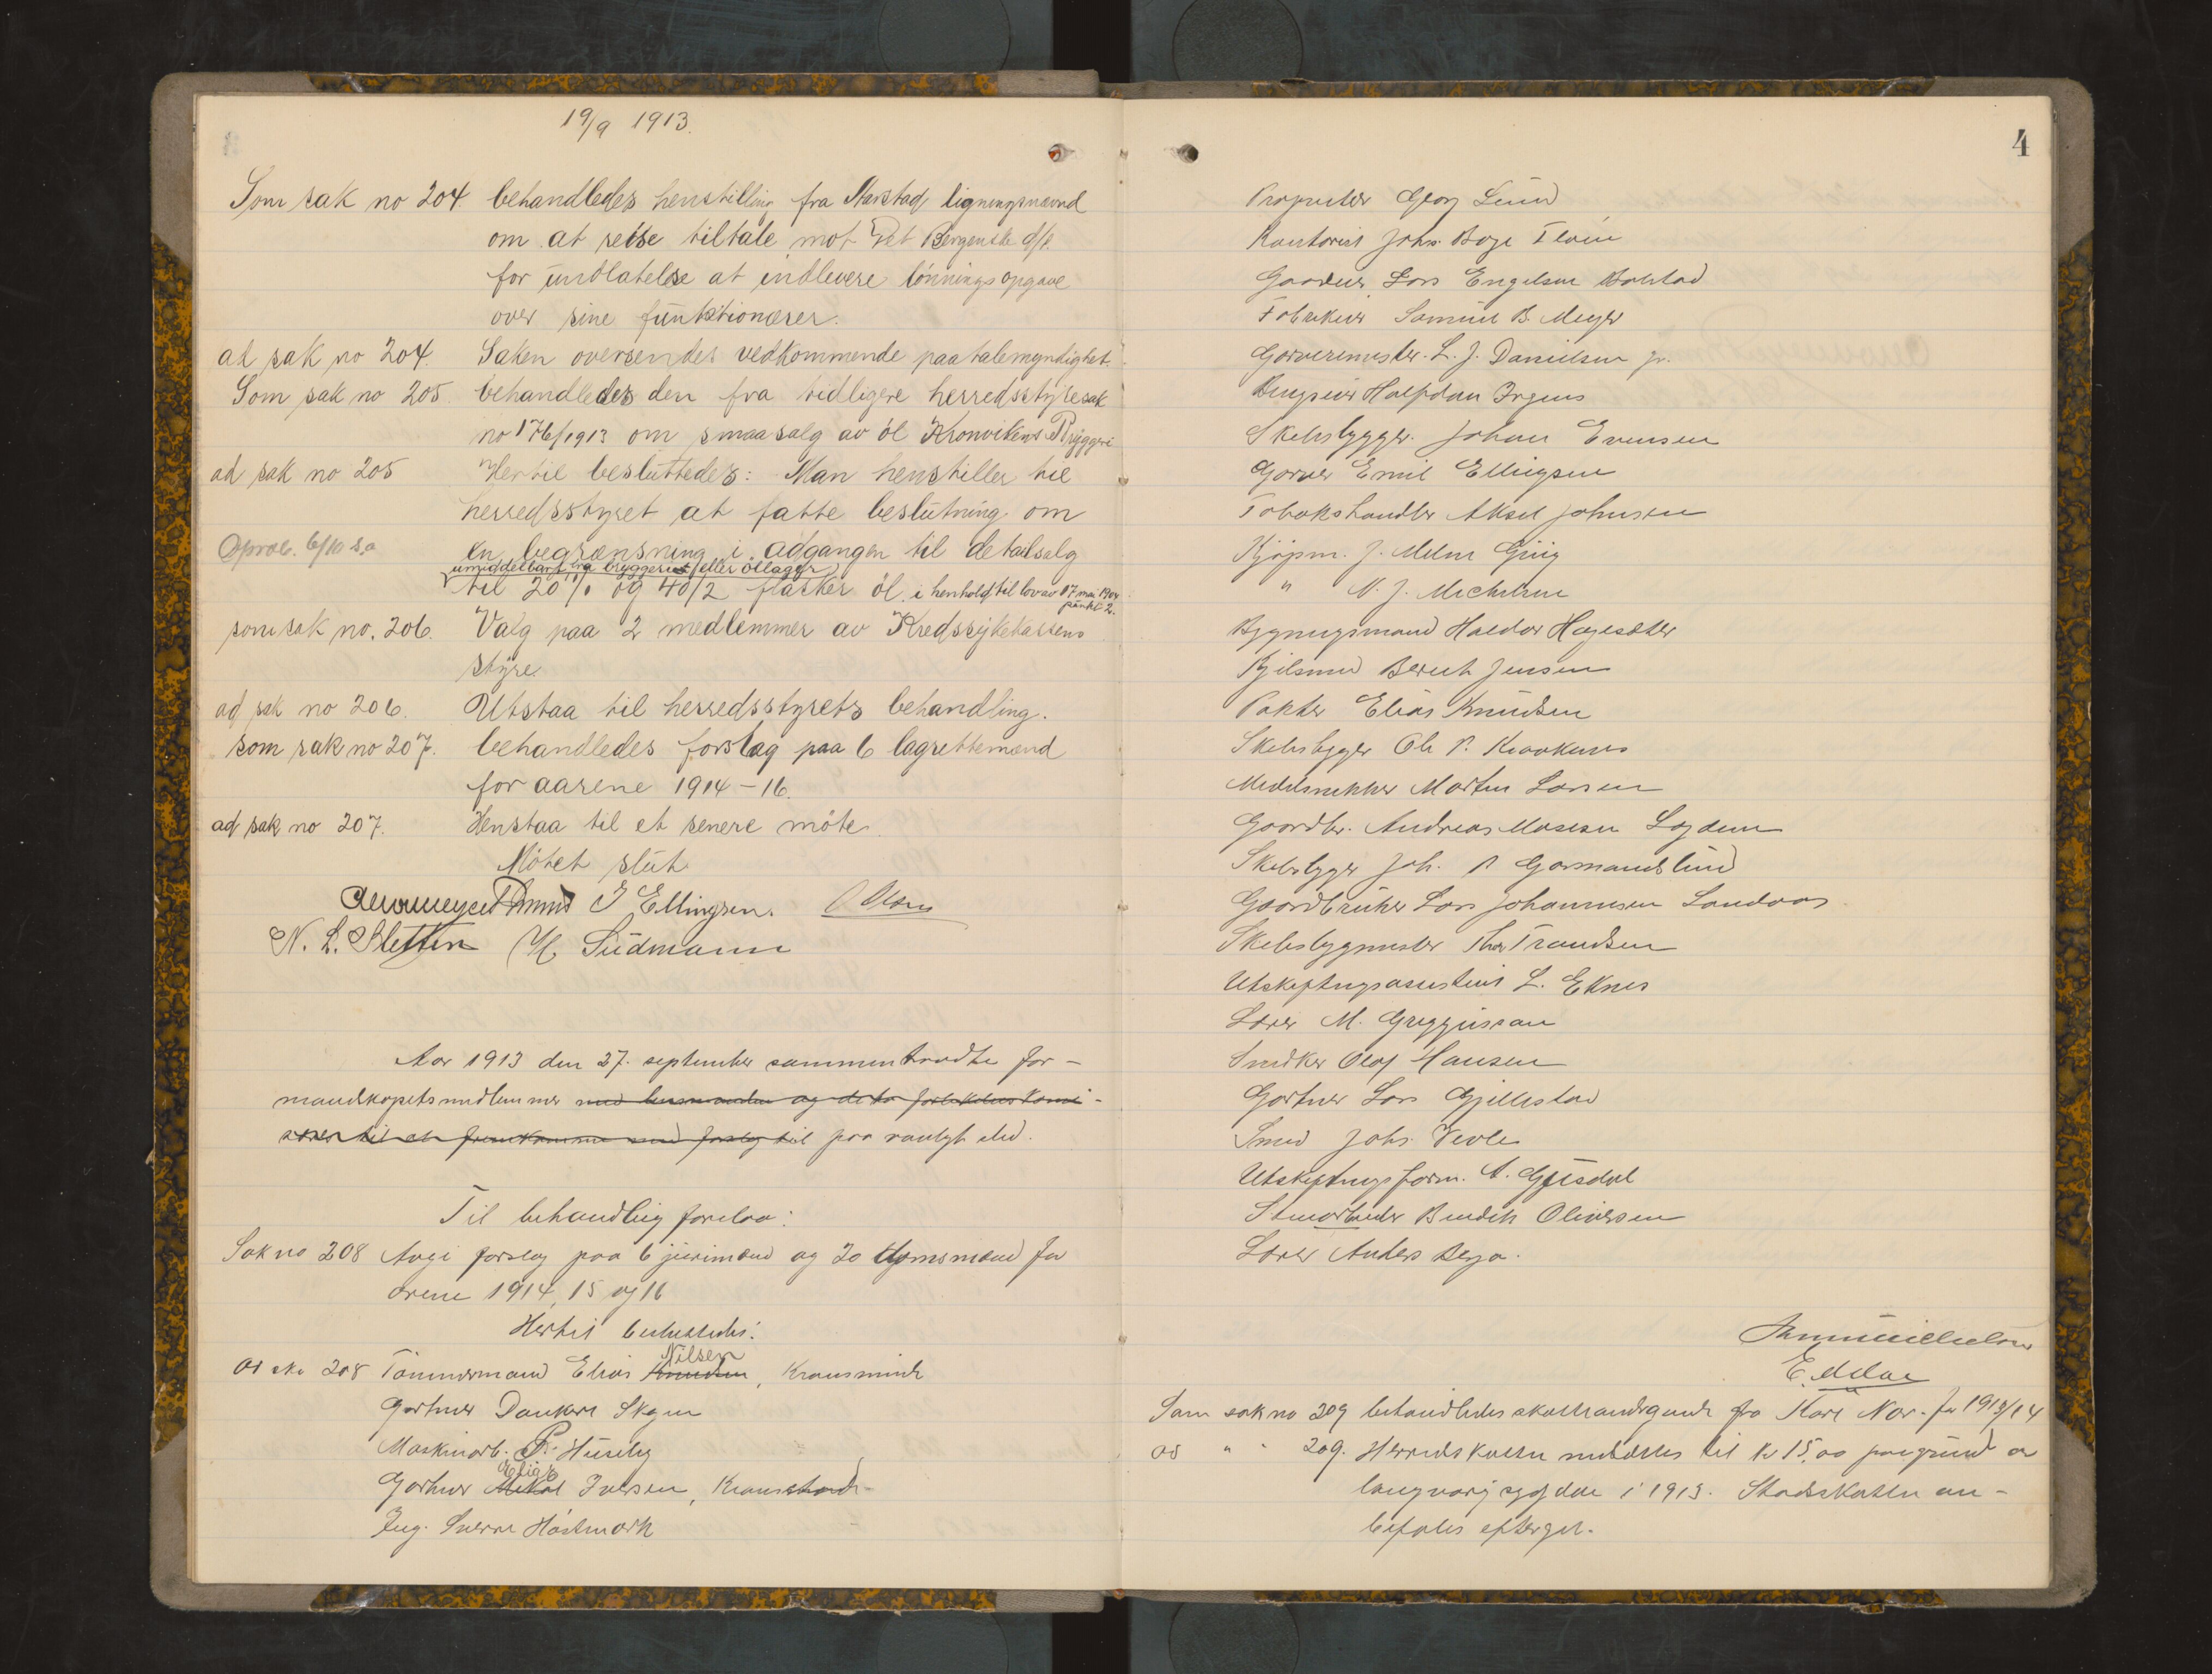 19/9 1913.
Som sak no 204. behandledes henstilling fra Aarstad ligningsnævnd
om at reise tiltale mot Det Bergenske d/s.
for undlatelse at indlevere lønningsopgave
over sine funktionærer.
ad sak no 204. Saken oversendes vedkommende paatalemyndighet.
Som sak no 205. behandledes den fra tidligere herredsstyresak
no 176/1913 om smaasalg av öl Kronvikens Bryggeri
ad sak no 205 Hertil besluttedes: Man henstiller til
herredsstyret at fatte beslutning om
6/10 s.a
en begrænsning i adgangen til detailsalg
umiddelbart fra bryggeriet eller öllager
til 20/1 og 40/2 flasker öl. i henhold til lov av 17 mai 1904
punkt 2.
som sak no. 206. Valg paa 2 medlemmer av Kredssykekassens
styre.
ad sak no 206. Utstaa til herredsstyrets behandling.
som sak no 207. behandledes forslag paa 6 lagrettemænd
for aarene 1914-16.
ad sak no 207. Henstaa til et senere möte.
Mötet slut
E Ellingsen.
N. L. Sletten H. Südmann
Aar 1913 den 27. september sammentraadte for-
mandskapets medlemmer med lensmanden og de to
til at fremkomme med forslag til paa vanlyt sted.
Til behandling forelaa:
Sak no 208 Avgi forslag paa 6 jurimænd og 20 domsmænd for
årene 1914, 15 og 16
Hertil besluttedes:
ad sak 208 Tömmermand Elias Knudsen,
Nilsen
Gartner Dankert Skagen
Maskinarb. P. Huseby
Elias
Gartner Mikal Iversen,
Ing. Sverre Håstmark
4
Proprietær Georg Lund
Kontorist Johs. Boge
Gaardeier Lars Engelsen Bolstad
Fabrikeier Samuel B. Meyer
Garvermester L. J. Danielsen jr.
Halfdan Irgens
Skibsbygger Johan Evensen
Garver Emil Ellingsen
Tobakshandler Aksel Johnsen
Kjöpm. J. Milne Grieg
" N. J. Michelsen
Bygningsmand Haldor Haglesæter
Berent Jensen
Pakker Elias Knudsen
Skibsbygger Ole P. Kraakenes
Modelsnekker Morten Larsen
Gaardbr. Andreas Monsen Lægden
Skibsbygger Joh. P Gormandslund
Gaardbruker Lars Johannesen Landaas
Skibsbygmester Thor Trondsen
Utskiftningsassistent L. Eknes
Lærer M. Greggussan
Snedker Olaf Hansen
Gartner Lars Gjellestad
Smed Johs. Vevle
Utskiftningsform. A. Gjesdal
Stenarbeider Bendik Oliversen
Lærer Anders Berge.
Som sak no 209 behandledes skatteandragende fra Karl Nor. for 1913/14
ad " " 209. Herredskatten nedsættes til kr 15,00 paa grund av
langvarig sygdom i 1913. Stadsskatten an-
befales eftergit.